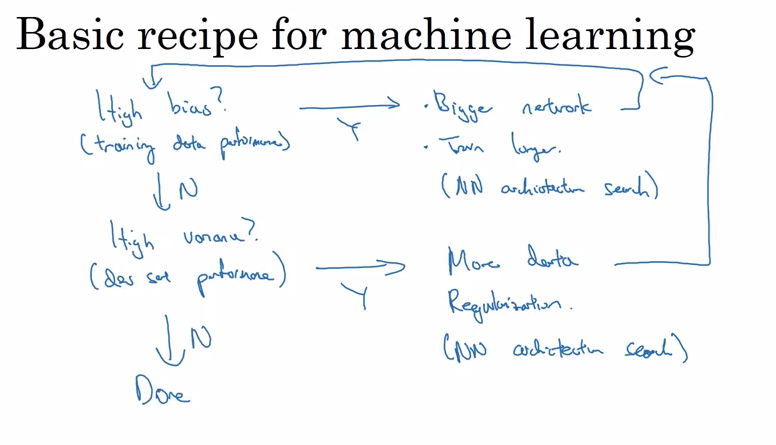 Basic recipe for machine learning
High bias?
(training data performance)
Y
· Bigger network
· Train longer.
(NN architecture search)
N
High variance?
(dev set performance)
Y
More data
Regularization.
(NN architecture search)
N
Done